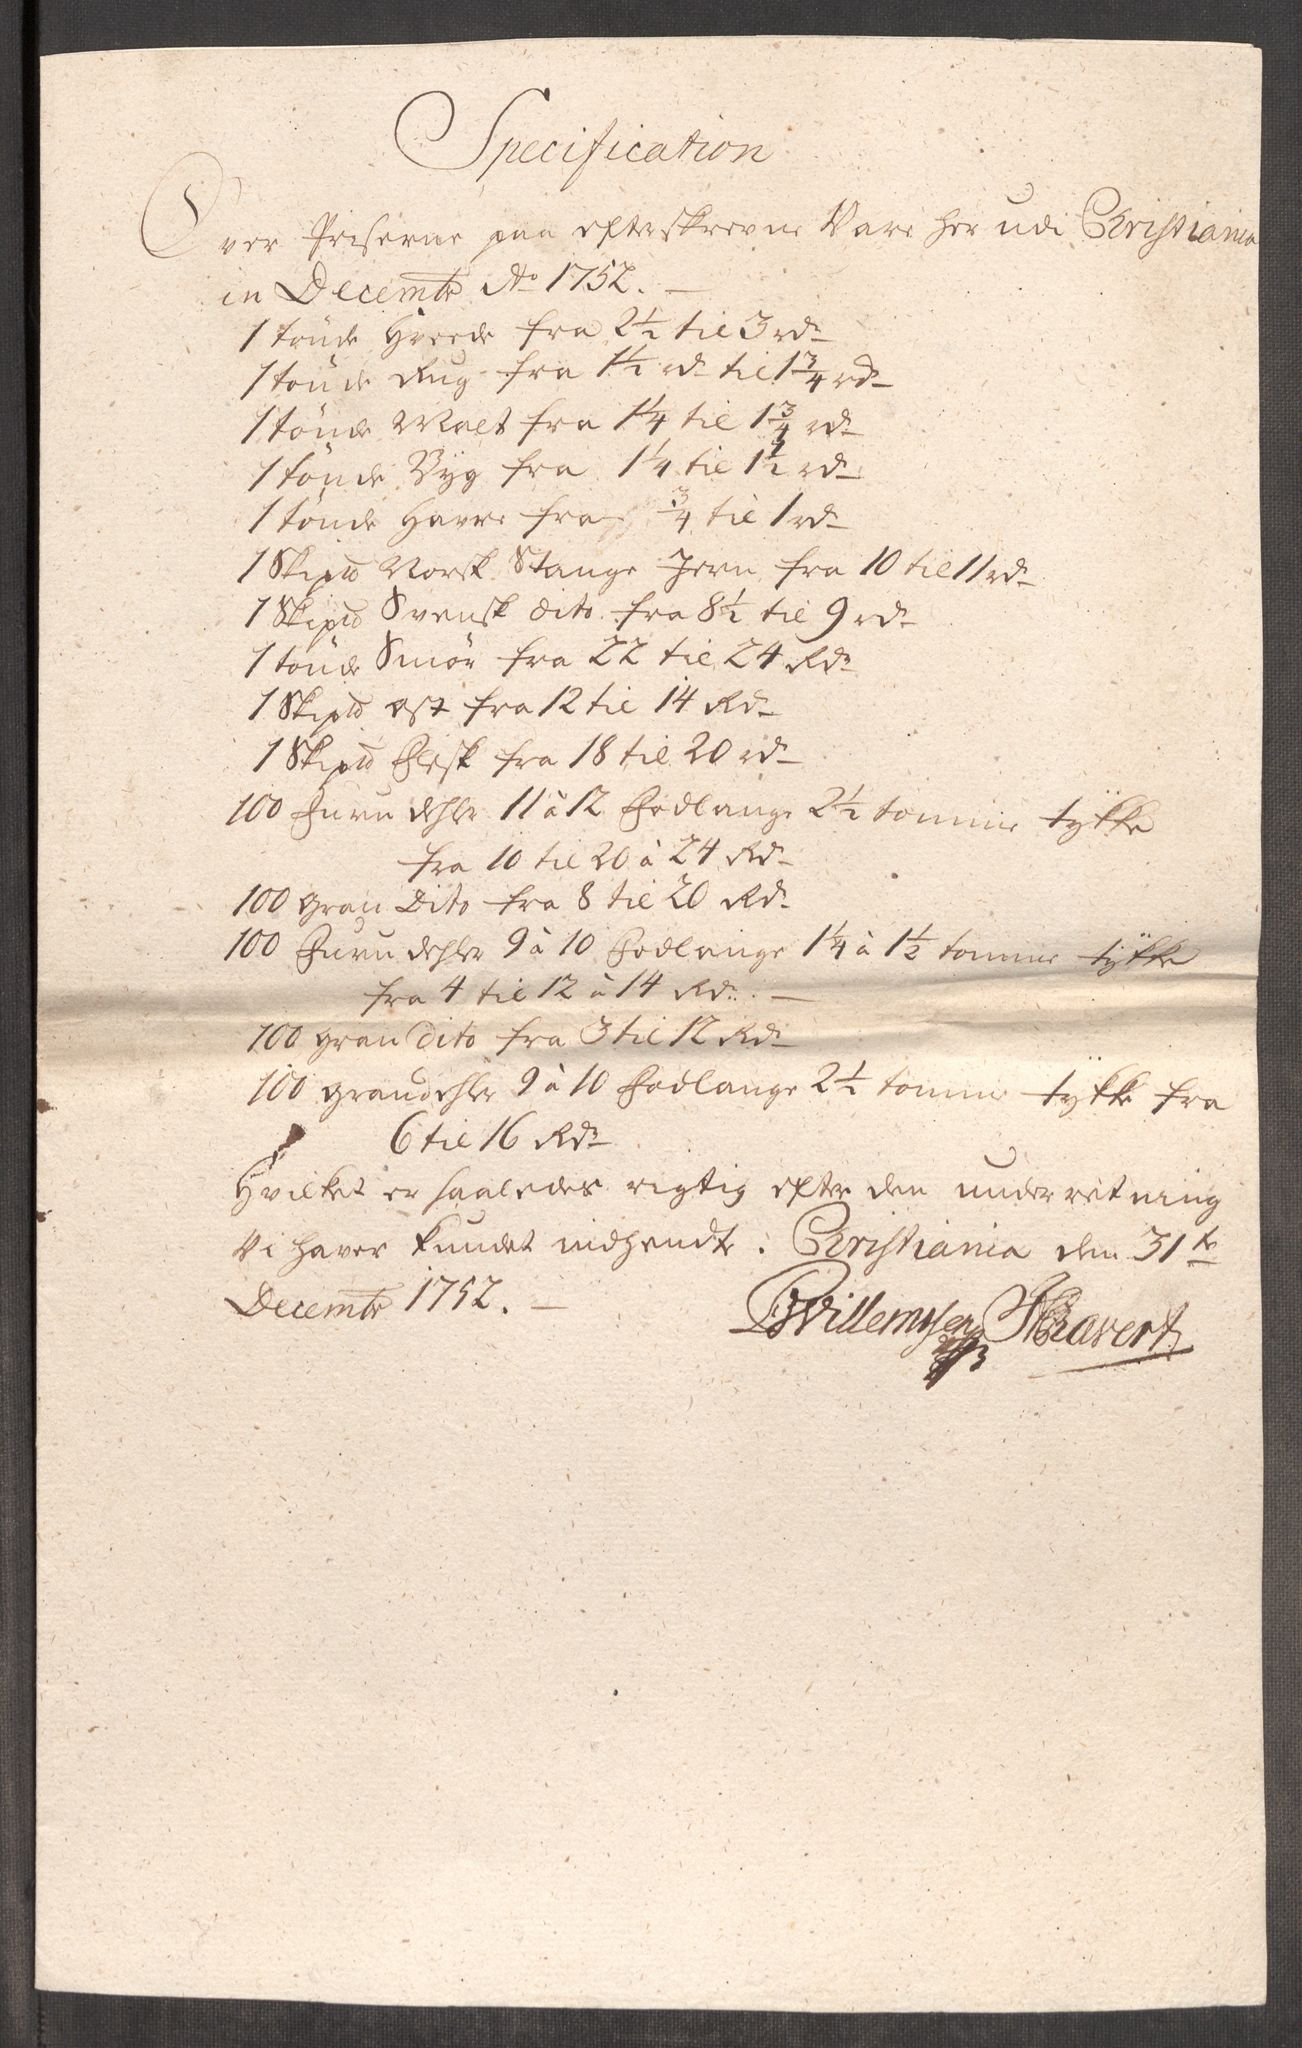 Specification
Over Priserne paa efterskrevne Vare her udi Christiania
in Decembr Ao 1752. —
1 tönde Hvede fra 2½ til 3 rdr
1 tönde Rug fra 1½ rdr til 1¾ rdr
1 tönde Malt fra 1¼ til 1¾ rdr
1 tönde Byg fra 1¼ til 1½ rdr
1 tönde Havre fra ¾ til 1 rdr
1 Skipd Norsk Stange Jern fra 10 til 11 rdr
1 Skipd Svensk dito fra 8½ til 9 rdr
1 tönde Smör fra 22 til 24 Rdr
1 Skipd ost fra 12 til 14 Rdr
1 Skipd Flesk fra 18 til 20 rdr
100 Furu dehler 11 à 12 Fodlange 2½ tomme tÿkke
fra 10 til 20 à 24 Rdr
100 gran Dito fra 8 til 20 Rdr
100 Furu dehler 9 à 10 Fodlange 1¼ à 1½ tomme tÿkke
fra 4 til 12 à 14 Rdr. —
100 gran Dito fra 3 til 12 Rdr
100 grandehler 9 à 10 Fodlange 2½ tomme tÿkke fra
6 til 16 Rdr
Hvilket er saaledes rigtig efter den underretning
Vi haver kundet indhendte. Christiania den 31te
Decembr 1752. —
Willemsen